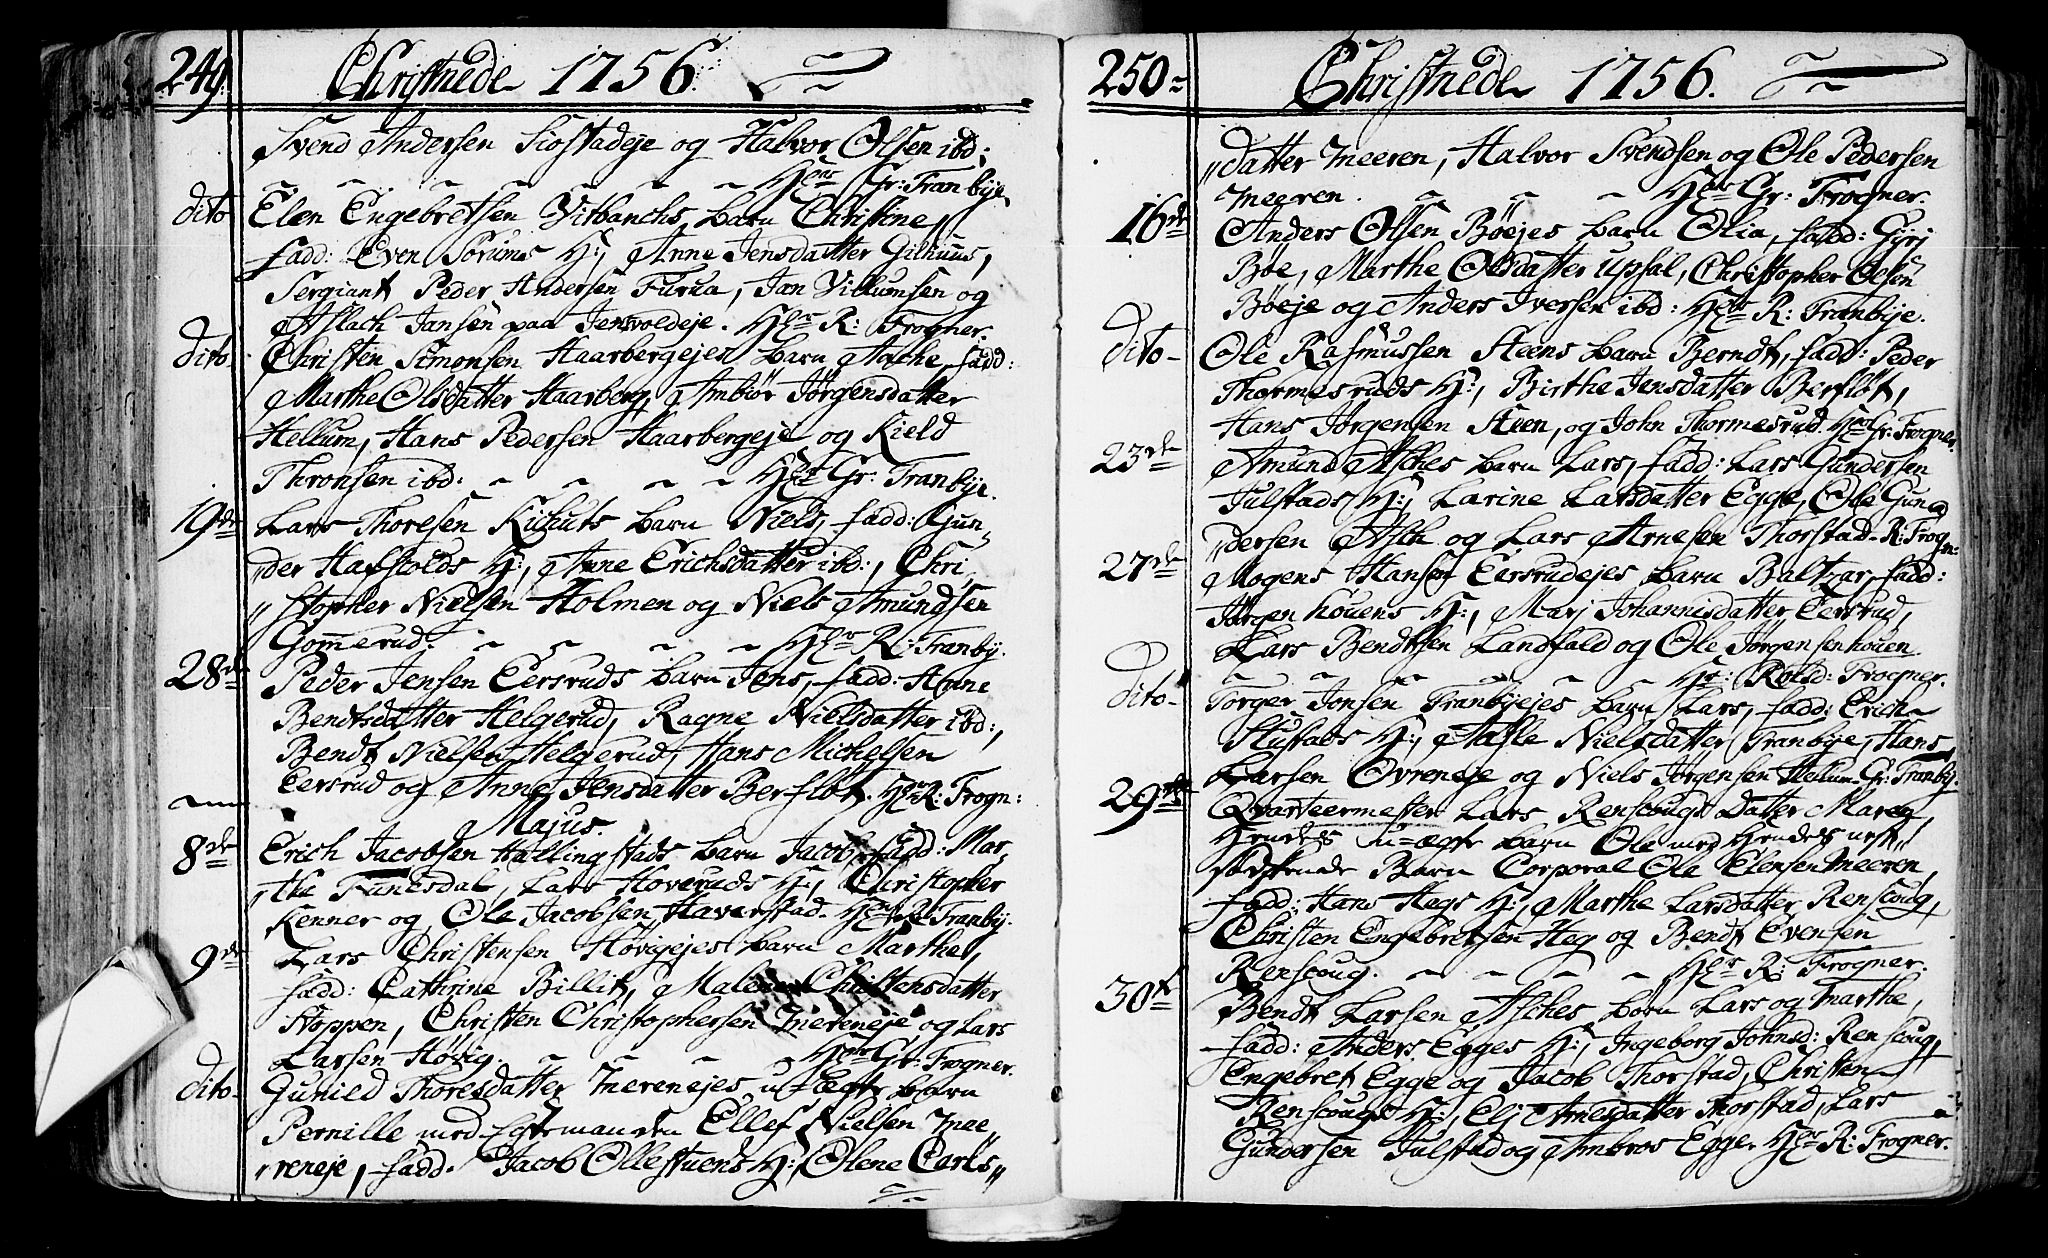 249.
Christnede 1756.
Svend Andersen Siostadeje og Halvor Olsen ibd:
Hr Gr: Tranbye.
dito
Elen Engebretsen Vitbanchs barn Christine,
fadd: Even Sørums H:, Anne Jensdatter Gilhuus,
Sergiant Peder Andersen Furua, Jan Villumsen og
Aslach Jansen paa Jensvoldeje. Hr R: Frogner.
dito
Christen Simonsen Haarbergejes barn Aache, fadd:
Marthe Olsdatter Haarberg, Ambiør Jørgensdatter
Hellum, Hans Pedersen Haarbergeje og Kield
Thronsen ibd: Hr Gr: Tranbye.
19de
Lars Thoresen Kihuts barn Niels, fadd: Gun-
"der Hafsolds H:, Anne Erichsdatter ibd:, Chri
"stopher Nielsen Holmen og Niels Amundsen
Gommerud. Hr R: Tranby.
28de
Peder Jensen Eersruds barn Jens, fadd: Anne
Bendtsdatter Helgerud, Ragne Nielsdatter ibd:,
Bendt Nielsen Helgerud, Hans Michelsen
Eersrud og Anne Jensdatter Berfløt. Hr R: Frogn:
Majus.
8de
Erich Jacobsen Hallingstads barn Jacob, fadd: Mar-
"the Funesdal, Lars Hoveruds H:, Christopher
Kenner og Ole Jacobsen Haverstad. Hr R: Tranby.
9de
Lars Christensen Høvigejes barn Marthe,
fadd: Cathrine Billit, Malene Christensdatter
Hoppen, Christen Christophersen Mereneje og Lars
Larsen Høvig. Hr Gr: Frogner.
dito
Gunild Thoresdatter Merenejes u-ægte barn
Pernille med Egtemanden Ellef Nielsen Mee-
"reneje, fadd. Jacob Ollestuens H:, Olene Carls"
250
Christnede 1756.
"datter Meeren, Halvor Svendsen og Ole Pedersen
Meeren. Hr Gr: Frogner.
16de
Anders Olsen Bøejes barn Olia, fadd: Gyrj
Bøe, Marthe Olsdatter Upsal, Christopher Olsen
Bøeje og Anders Iversen ibd: Hr R: Tranbye.
dito
Ole Rasmussen Steens barn Berndt, fadd: Peder
Thormesruds H:, Birthe Jensdatter Berfløt,
Hans Jørgensen Steen, og John Thormesrud. Hr Gr: Frogner.
23de
Amund Asches barn Lars, fadd: Lars Gundersen
Julstads H:, Larine Larsdatter Egge, Ole Gun
"dersen Asch og Lars Arnesen Thorstad. R: Frogn:
27de
Mogens Hansen Eersrudejes barn Baltzar, fadd:
Jørgen houens H:, Marj Johannisdatter Eersrud,
Lars Bendtsen Landfald og Ole Jørgensen houen.
Hr: Rolsd: Frogner.
dito
Torger Jonsen Tranbyejes barn Lars, fadd: Erich
Stustads H:, Aasle Nielsdatter Tranbye, Hans
Larsen Ovreneje og Niels Jørgensen Hellum. Gr: Tranby.
29de
Qvarteermester Lars Renscougs Datter Maren,
Hendes u-ægte barn Ole med Hendes næst
Sødskende Barn Corporal Ole Elensen Meeren,
fadd: Hans Hags H:, Marthe Larsdatter Renscoug,
Christen Engebretsen Heg og Bendt Evensen
Renscoug. Hr R: Frogner.
30te
Bendt Larsen Asches born Lars og Marthe,
fadd: Anders Egges H:, Ingeborg Johnsd: Renscoug,
Engebret Egge og Jacob Thorstad, Christen
Renscougs H:, Elj Arnesdatter Thorstad, Lars
Gundersen Julstad og Ambros Egge. Hr R: Frogner.